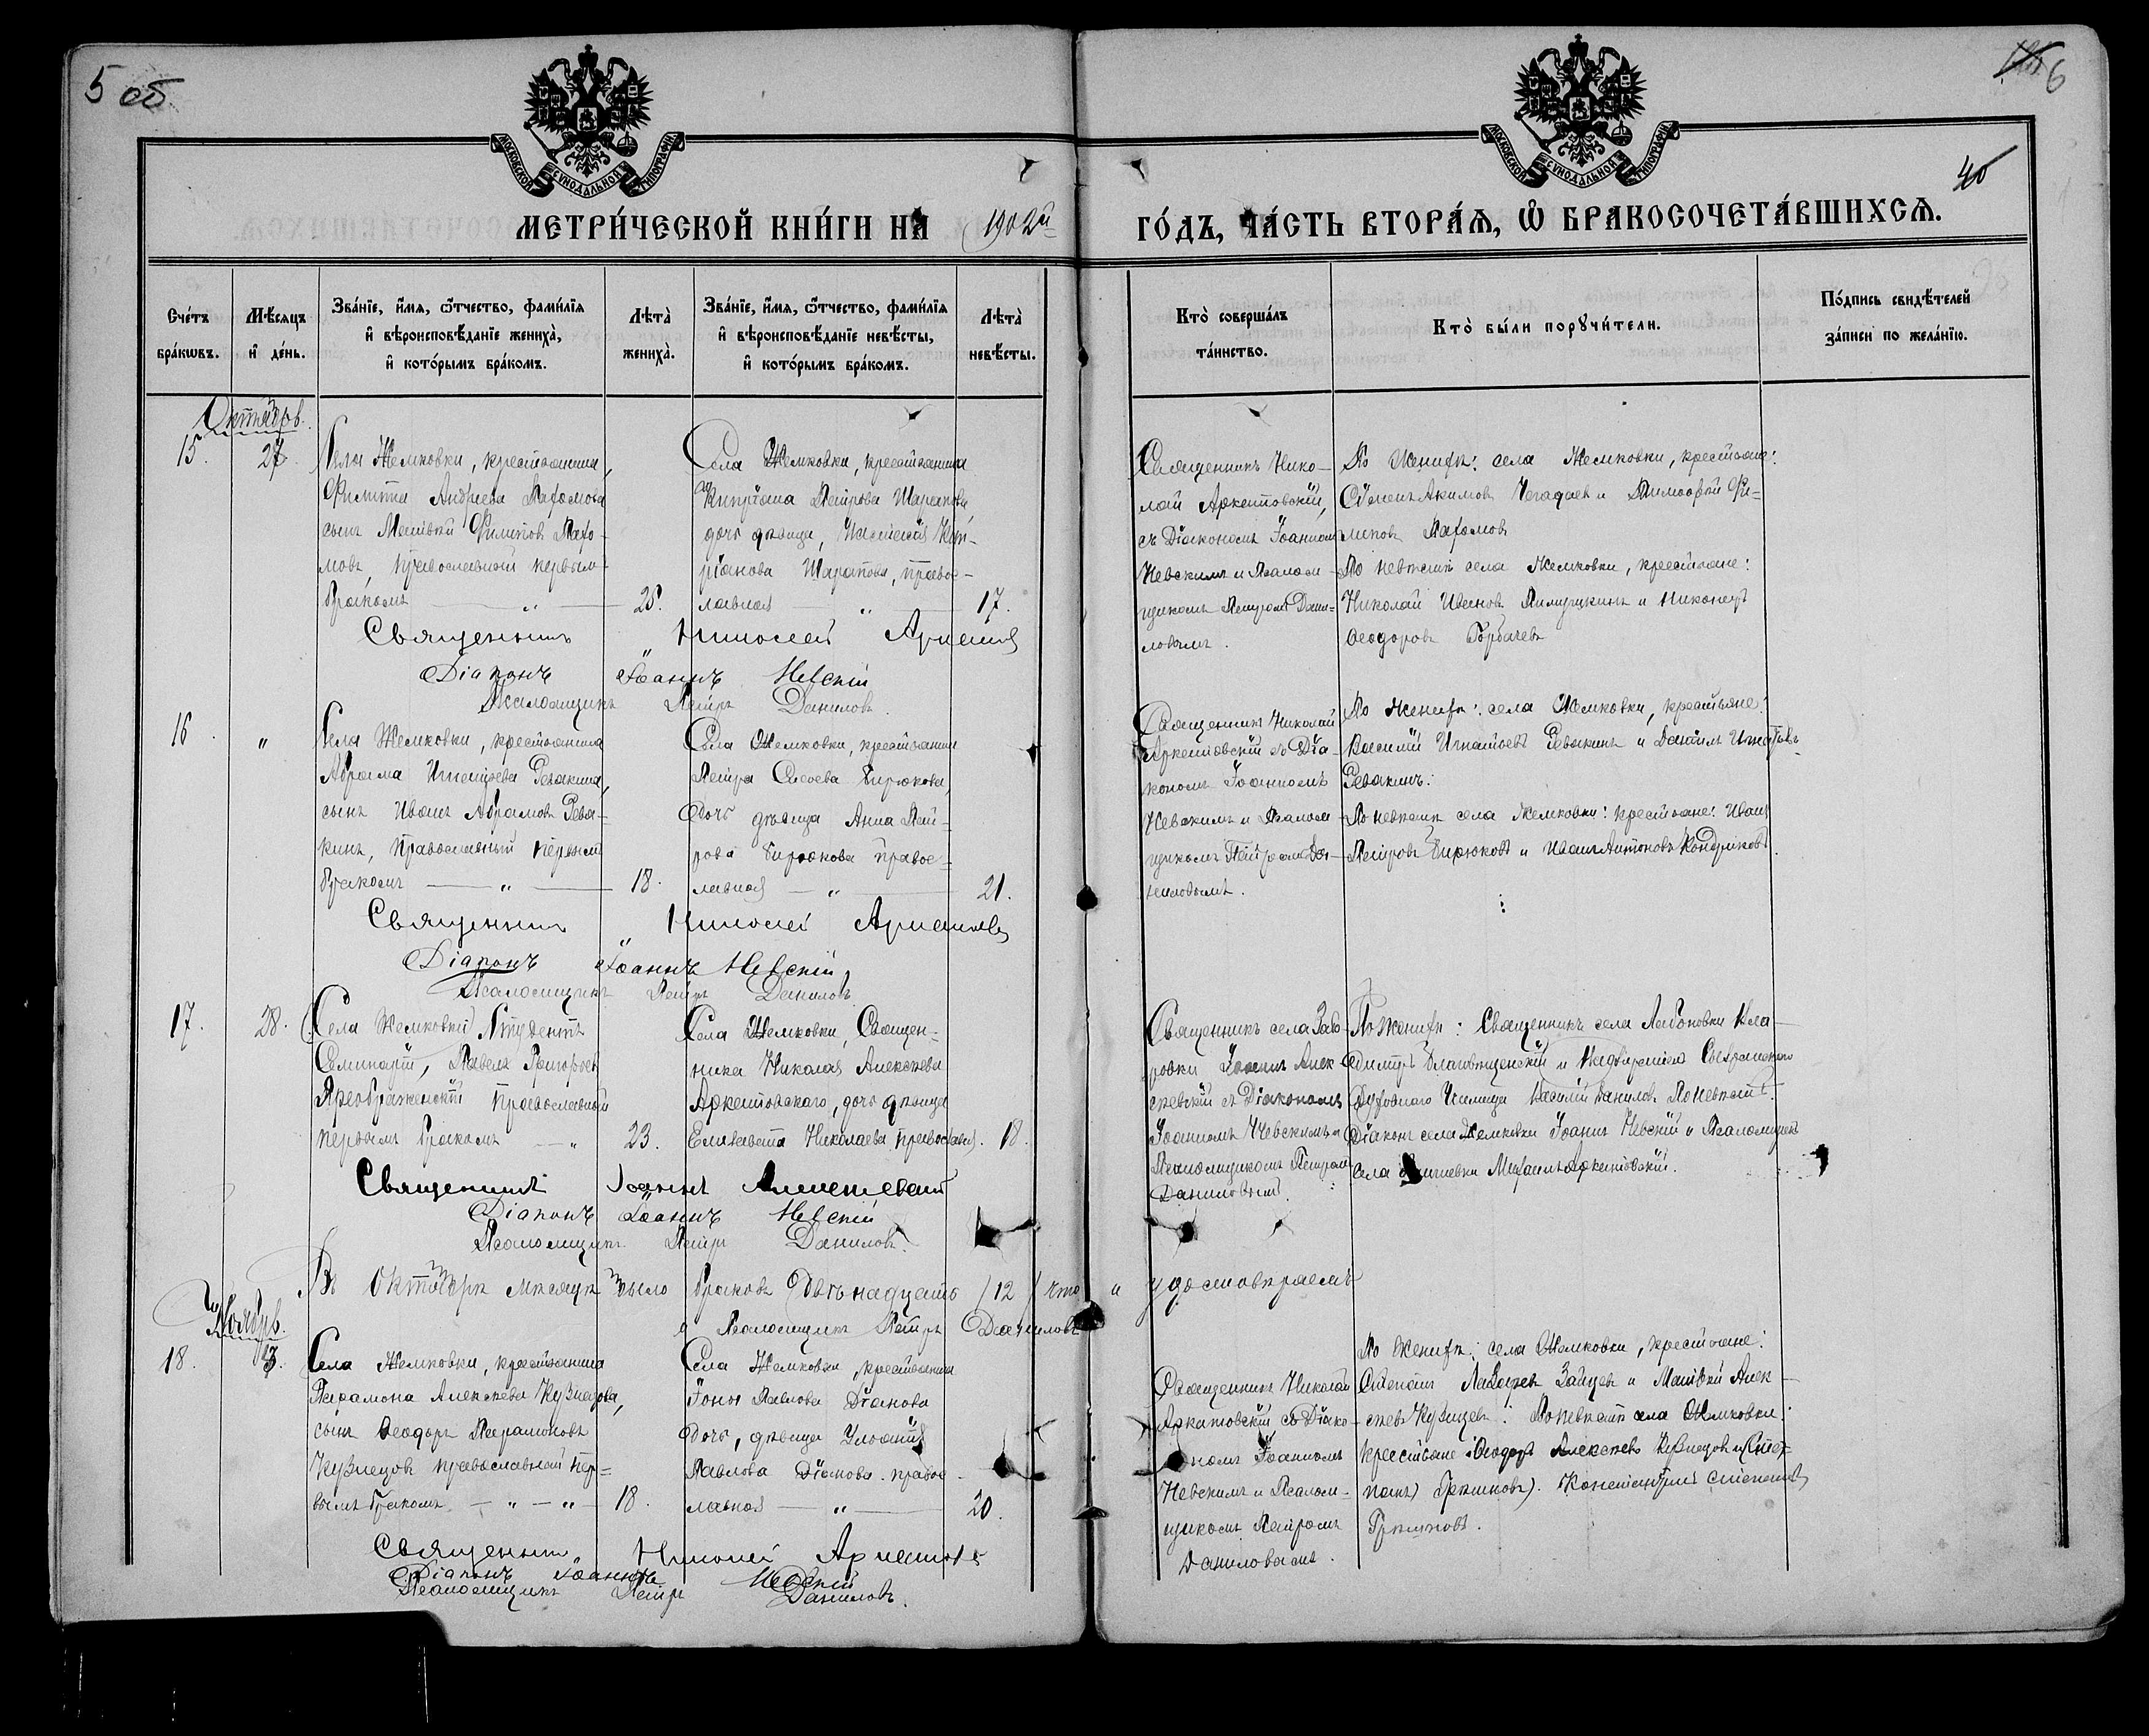 5 об
6
40
МОСКОВСКОЙ СѴНОДАЛЬНОЙ ТИПОГРАФІИ
МОСКОВСКОЙ СѴНОДАЛЬНОЙ ТИПОГРАФІИ
МЕТРИ́ЧЕСКОЙ КНИ́ГИ НА 1902й
ГО́ДЪ, ЧА́СТЬ ВТОРА́Я, Ѡ БРАКОСОЧЕТА́ВШИХСЯ.
Сче́тъ
бра́кѡвъ.
Мѣ́сяцъ
и҆ де́нь.
Зва́нїе, и҆́мя, ѻ҆́тчество, фами́лїя
и҆ вѣроисповѣ́данїе жениха̀,
и҆ кото́рымъ бра́комъ.
Лѣта̀
жениха̀.
Зва́нїе, и҆́мя, ѻ҆́тчество, фами́лїя
и҆ вѣроисповѣ́данїе невѣ́сты,
и҆ кото́рымъ бра́комъ.
Лѣта̀
невѣ́сты.
Кто̀ соверша́лъ
та́инство.
Кто̀ бы́ли порꙋчи́тели.
По́дпись свидѣ́телей
за́писи по жела́нїю.
Октябрь.
15.
27.
Села Жемковки, крестьянина,
Филиппа Андреева Пахомова
сынъ Матвѣй Филиповъ Пахо-
мовъ, православный первымъ
бракомъ — „ —
25.
Села Жемковки, крестьянина
Кипріана Петрова Шарапова,
дочь дѣвица, Кип-
ріанова Шарапова, правос-
лавная — „ —
17.
Священникъ Нико-
лай Аркатовскій,
съ Діакономъ Іоанномъ
Невскимъ и Псалом-
щикомъ Петромъ Дани-
ловымъ.
По Женихѣ: села Жемковки, крестьяне:
Семенъ Акимовъ Чегадаев и Тимофей Фи-
липовъ Пахомовъ
По невѣстѣ села Жемковки, крестьяне:
Николай Ивановъ и
Ѳеодоровъ Горбачевъ
Священникъ Николай
Діаконъ Іоаннъ Невскій
Псаломщикъ Петръ Даниловъ.
16.
„
Села Жемковки, крестьянина
Абрама Игнатьева Ревякина,
сынъ Иванъ Абрамовъ Ревя-
кинъ, Православный первымъ
бракомъ — „ —
18.
Села Жемковки, крестьянина
Петра Сысоева Бирюкова,
дочь дѣвица Анна Пет-
рова Бирюкова правос-
лавная — „ —
21.
Священникъ Николай
Аркатовскій съ Діа-
кономъ Іоанномъ
Невскимъ и Псалом-
щикомъ Петромъ Да-
ниловымъ.
По Женихѣ: села Жемковки, крестьяне:
Василій Игнатьевъ Ревякинъ и Данилъ Игнатьевъ
Ревякинъ:
По невѣстѣ села Жемковки: крестьяне: Иванъ
Петровъ Бирюковъ и Иванъ Антоновъ Кондриковъ.
Священникъ Николай
Діаконъ Іоаннъ Невскій
Псаломщикъ Петръ Даниловъ
17.
28.
(Села Жемковки) Студентъ
Семинаріи, Павелъ Григорьевъ
Преображенскій Православный
первымъ бракомъ — „
23.
Села Жемковки, Священ-
ника Николая Алексѣева
Аркатовскаго, дочь дѣвица
Елизавета Николаева православ.
18.
Священникъ села Заб-
ровки Іоаннъ Алек-
сѣевскій съ Діакономъ
Іоанномъ Невскимъ и
Псаломщикомъ Петромъ
Даниловымъ.
По женихѣ: Священникъ села Вла-
димиръ Благовѣщенскій и Надзиратель Сызранскаго
Духовнаго Училища Василій Даниловъ По невѣстѣ.
Діаконъ села Жемковки Іоаннъ Невскій и Псаломщикъ
села Михаилъ Аркатовскій.
Священникъ Іоаннъ Алексѣевскій
Діаконъ Іоаннъ Невскій
Псаломщикъ Петръ Даниловъ.
Въ Октябрѣ мѣсяцѣ было браковъ двѣнадцать (12) что и удостовѣряемъ
Псаломщикъ Петръ Даниловъ
Ноябрь.
18.
3.
Села Жемковки, крестьянина
Парамона Алексѣева Кузнецова,
сынъ Ѳеодоръ Парамоновъ
Кузнецовъ православный пер-
вымъ бракомъ — „ — „ —
18.
Села Жемковки, крестьянина
Іоны Павлова Діанова
дочь, дѣвица Ульянія
Павлова Діанова правос-
лавная — „ —
20.
Священникъ Николай
Аркатовскій съ Діако-
номъ Іоанномъ
Невскимъ и Псалом-
щикомъ Петромъ
Даниловымъ.
По Женихѣ: села Жемковки, крестьяне:
Степанъ Лазаревъ Зайцевъ и Матвѣй Алек-
сѣевъ Кузнецовъ: По невѣстѣ села Жемковки:
крестьяне: Ѳеодоръ Алексѣевъ Кузнецовъ и (Сте-
панъ) Гришковъ). Константинъ Степановъ
Гришковъ.
Священникъ Николай
Діаконъ Іоаннъ Невскій
Псаломщикъ Петръ Даниловъ.